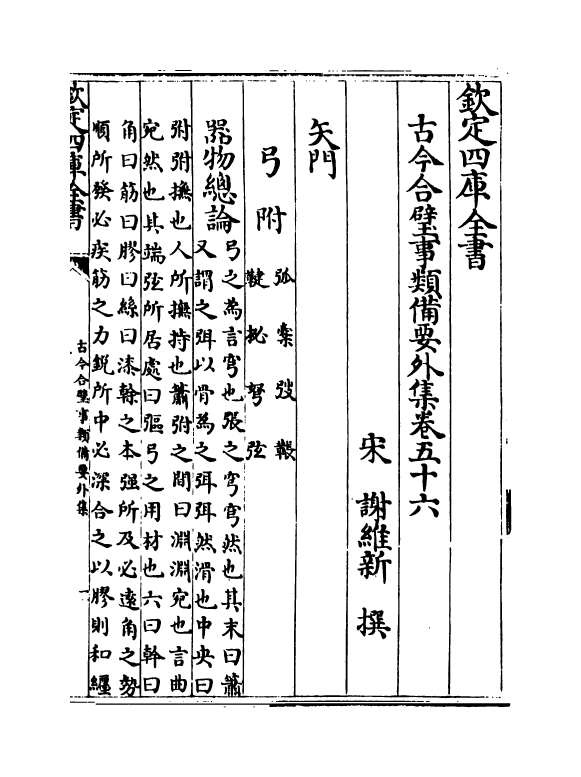 欽定四庫全書
古今合璧事類備要外集卷五十六
宋　謝維新　撰
矢門
弓附　弧　櫜　弢　韔
鞬　柲　弩　弦
器物總論　弓之為言穹也張之穹穹然也其末曰簫
又謂之弭以骨為之弭弭然滑也中央曰
弣弣撫也人所撫持也簫弣之間曰淵淵宛也言曲
宛然也其端弦所居處曰彄弓之用材也六曰幹曰
角曰筋曰膠曰絲曰漆幹之本强所及必遠角之勢
順所發必疾筋之力銳所中必深合之以膠則和纒
欽定四庫全書
古今合璧事類備要外集
一